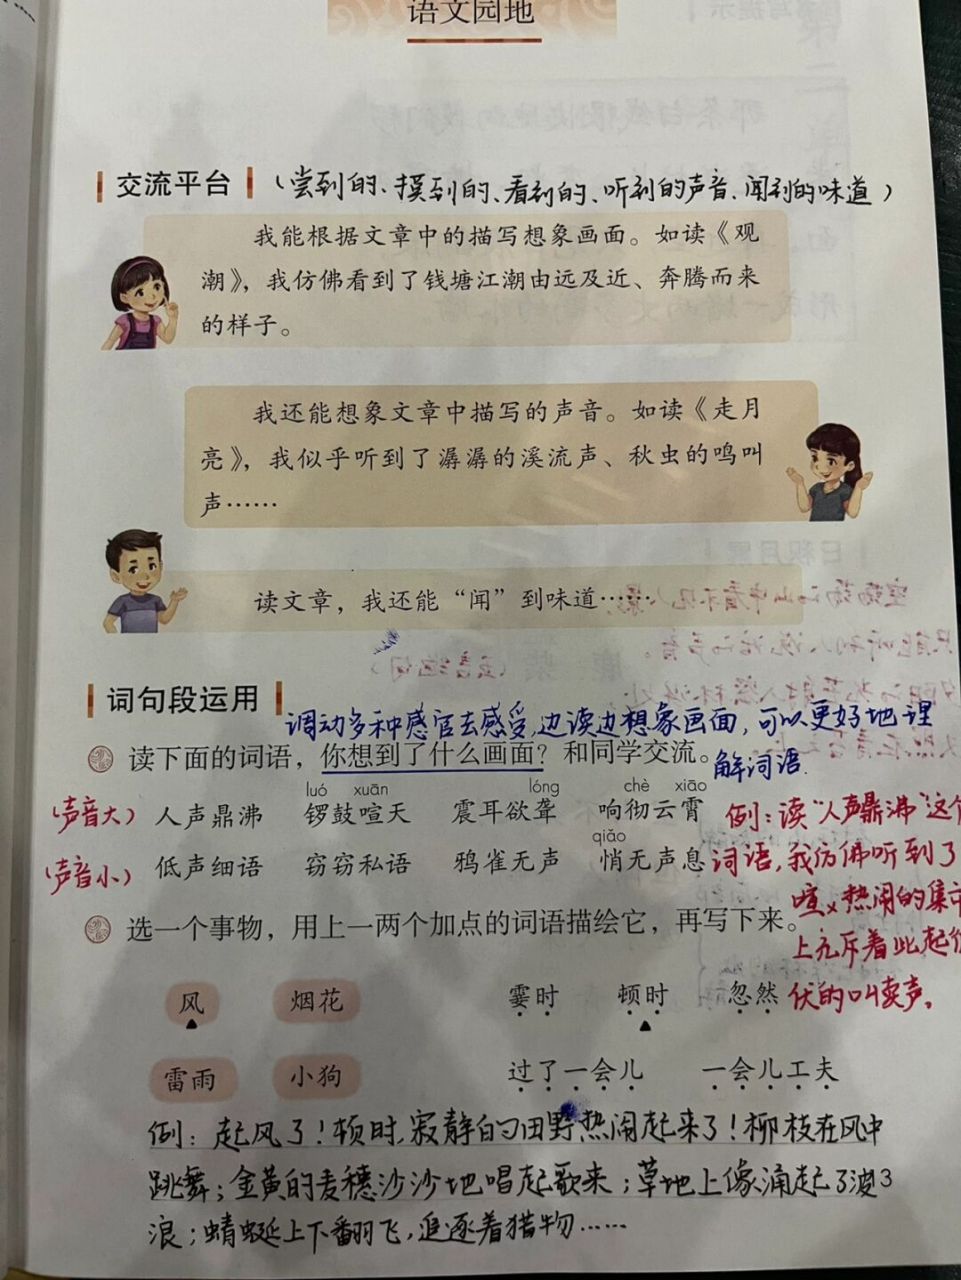 语文园地
交流平台 （尝到的、摸到的、看到的、听到的声音、闻到的味道）
我能根据文章中的描写想象画面。如读《观
潮》，我仿佛看到了钱塘江潮由远及近、奔腾而来
的样子。
我还能想象文章中描写的声音。如读《走月
亮》，我似乎听到了潺潺的溪流声、秋虫的鸣叫
声……
读文章，我还能“闻”到味道……
词句段运用
调动多种感官去感受，边读边想象画面，可以更好地理
解词语.
读下面的词语，你想到了什么画面？和同学交流。
luó xuān lóng chè xiāo
（声音大） 人声鼎沸 锣鼓喧天 震耳欲聋 响彻云霄
qiǎo
（声音小） 低声细语 窃窃私语 鸦雀无声 悄无声息
例：读“人声鼎沸”这个
词语，我仿佛听到了
喧 热闹的集市
上充斥着此起彼
伏的叫卖声。
选一个事物，用上一两个加点的词语描绘它，再写下来。
风 烟花 霎时 顿时 忽然
雷雨 小狗 过了一会儿 一会儿工夫
例：起风了！顿时，寂静的田野热闹起来了！柳枝在风中
跳舞；金黄的麦穗沙沙地唱起歌来；草地上像涌起了波
浪；蜻蜓上下翻飞，追逐着猎物……
3